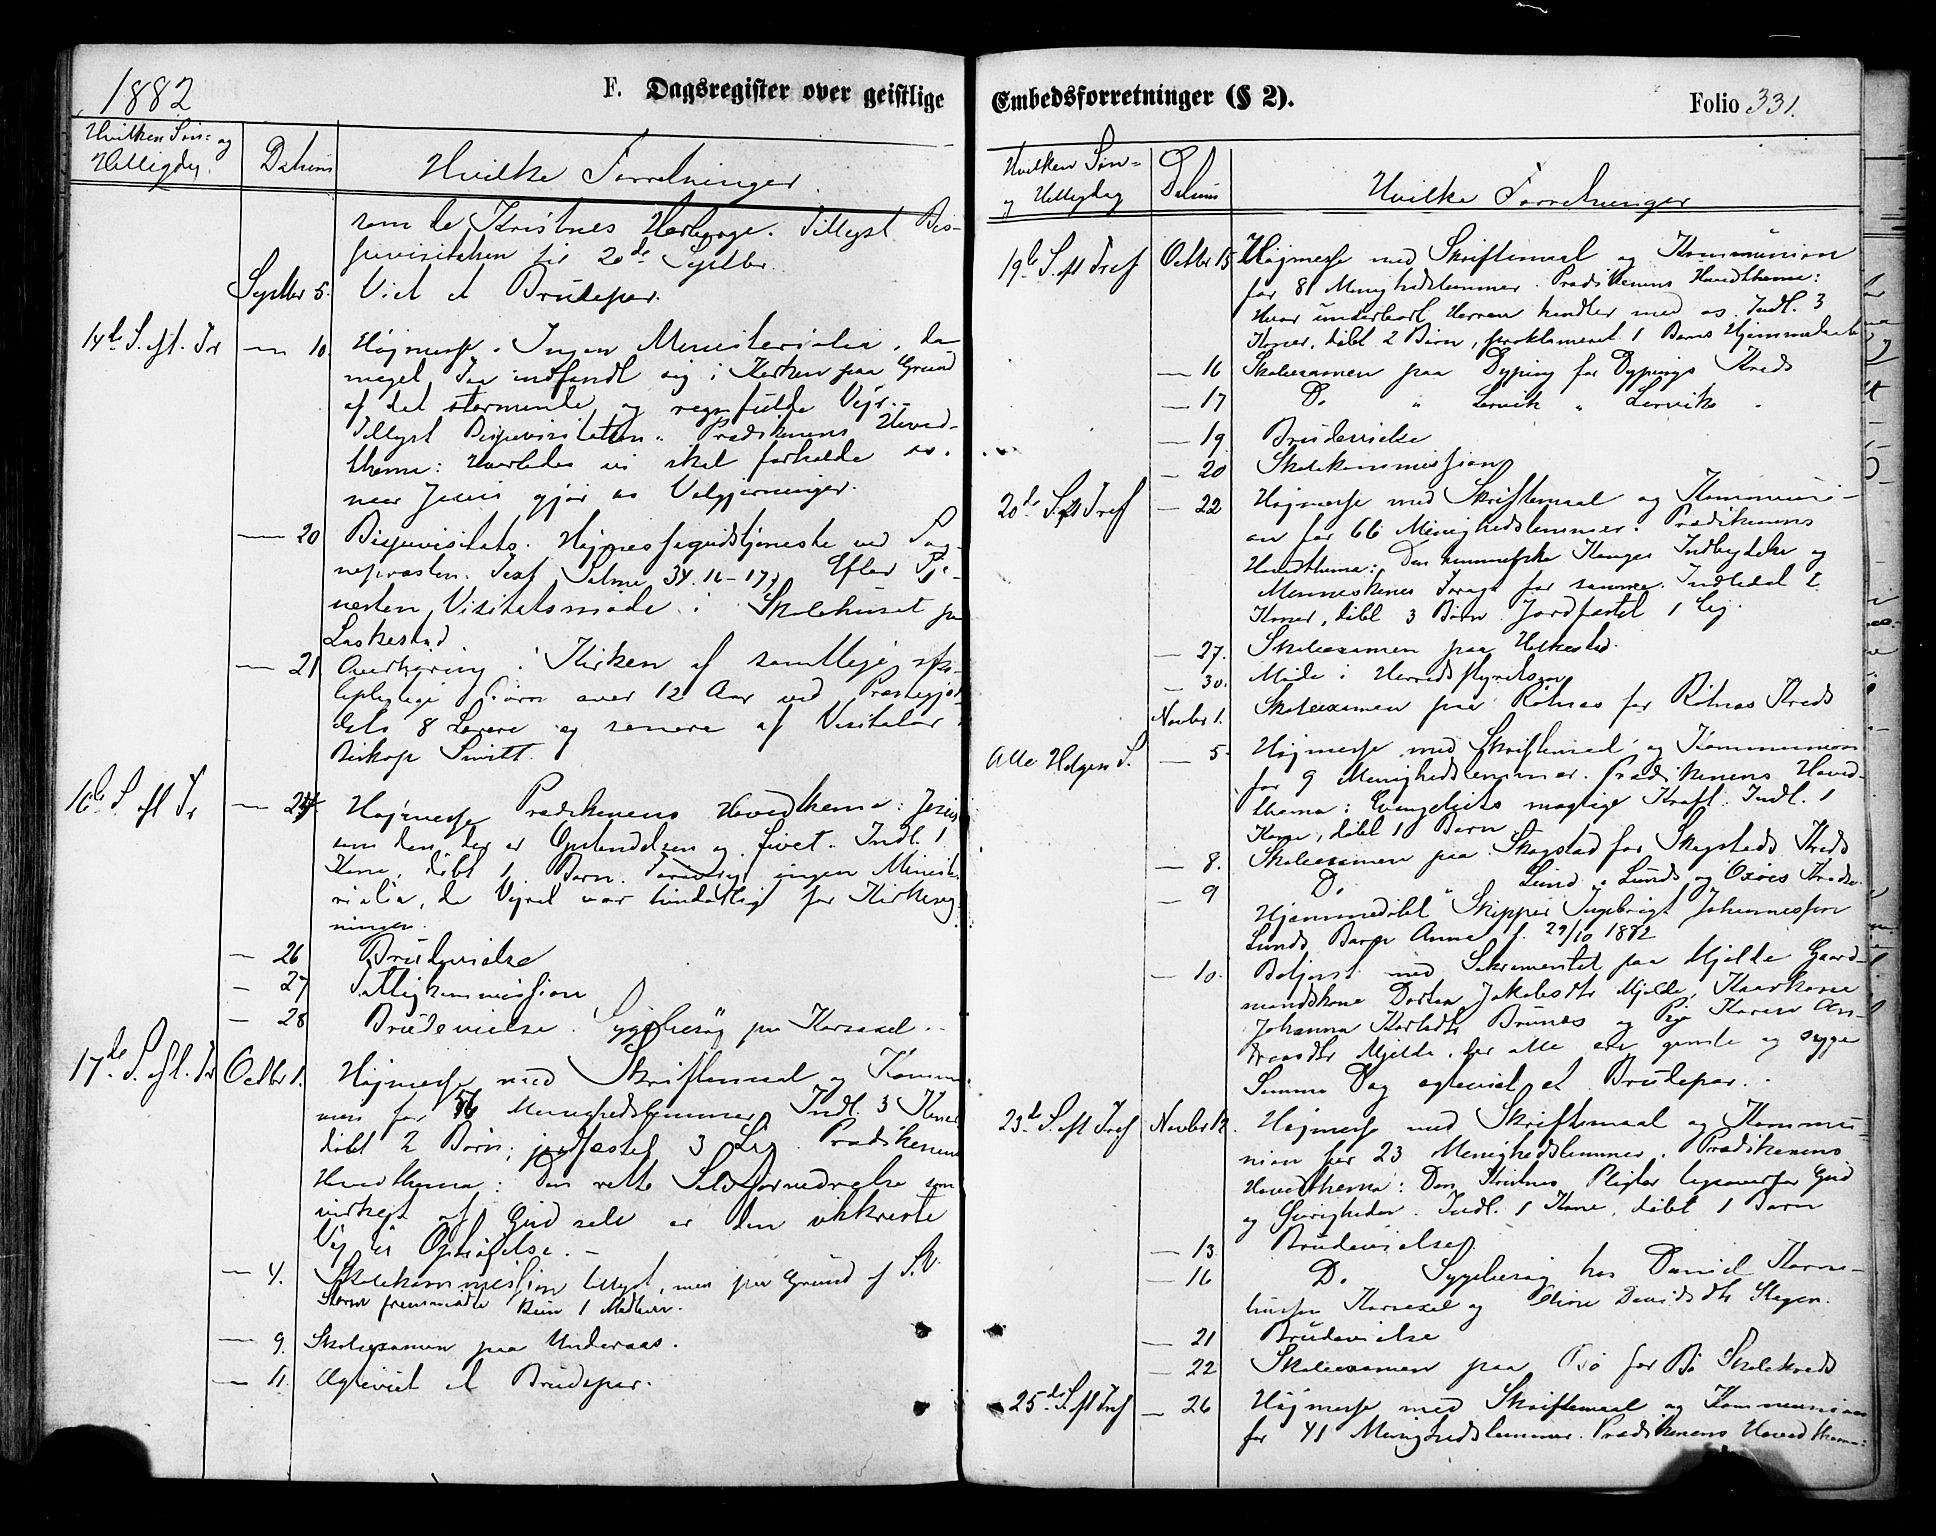 1882
F. Dagsregister over geistlige
Hvilken Søn= og
Helligdag.
Datum
Hvilke Forretninger.
som de Kristnes Herberge. Tillyst Bis-
pevisitatsen til 20de Septbr.
Septbr 5. Viet et Brudepar.
14de S. eft. Tr — 10. Højmesse. Ingen Ministerialia, da
meget faa indfandt sig i Kirken paa Grund
af det stormende og regnfulde Vejr.
Tillyst Bispevisitatsen. Prædikenens Hoved-
thema: Hvorledes vi skal forholde os
naar Jesus gjør os Velgjerninger.
— 20 Bispevisitats. Højmessegudstjeneste ved Sog-
nepræsten. Text Salme 34. 16-17. Efter Tje-
nesten Visitatsmøde i Skolehuset paa
Laskestad
— 21 Overhøring i Kirken af samtlige sko-
lepligtige Børn over 12 Aar ved Præstegjæl-
dets 8 Lærere og senere af Visitator
Biskop Smitt.
16de S. eft Tr — 24. Højmesse Prædikenens Hovedthema: Jesus
som den, der er Opstandelsen og Livet. Indl. 1
Kone, døbt 1 Barn. Forøvrigt ingen Ministe-
rialia, da Vejret var hinderligt for Kirkesøg-
ningen.
— 26 Brudevielse
— 27 Fattigkommission
— 28 Brudevielse. Sygebesøg paa Korsaxel.
17de S. eft. Tr Octbr 1. Højmesse med Skriftemaal og Kommu-
nion for 56 Menighedslemmer, Indl. 3 Koner
døbt 2 Børn; jordfæstet 3 Lig. Prædikenens
Hovedthema: Den rette Selvfornedrelse som
virket af Gud selv er den sikkreste
Vej til Ophøjelse.
— 4. Skolekommission tillyst, men paa Grund af S.V.
Storm fremmødte kun 1 Medlem.
— 9. Skoleexamen paa Underaas.
— 11. Ægteviet et Brudepar.
Embedsforretninger (§ 2).
Folio 331.
Hvilken Søn-
og Helligdag
Datum
Hvilke Forretninger
19de S. eft Tref Octbr 15 Højmesse med Skriftemaal og Kommunion
for 8 Menighedslemmer. Prædikenens Hovedthema:
Hvor underbart Herren handler med os. Indl. 3
Koner, døbt 2 Børn, proklameret 1 Barns Hjemmedaab
— 16 Skoleexamen paa Dyping for Dypings Kreds
— 17 Do " Lervik " Lerviks "
— 19 Brudevielse
— 20 Skolekommission
20de S. eft Tref — 22 Højmesse med Skriftemaal og Kommuni-
on for 66 Menighedslemmer. Prædikenens
Hovedthema: Den himmelske Konges Indbydelse og
Menneskenes Foragt for samme. Indledet 2
Koner, døbt 3 Børn. Jordfæstet 1 Lig.
— 27. Skoleexamen paa Holkestad.
— 30. Møde i Herredsstyrelsen
Novbr 1. Skoleexamen paa Rotnes for Rotnes Kreds
Alle Helgens S. — 5. Højmesse med Skriftemaal og Kommunion
for 9 Menighedslemmer. Prædikenens Hoved-
thema: Evangeliets mægtige Kraft. Indl. 1
Kone, døbt 1 Barn
— 8. Skoleexamen paa Skogstad for Skogstads Kreds
— 9 Do " Lund " Lunds og Oxøes Kredse
Hjemmedøbt Skipper Ingebrigt Johannessen
Lunds Barn Anna f. 29/10 1882
— 10. Betjent med Sakramentet paa Mjelde Gaard-
mandskone Dortea Jakobsdtr Mjelde, Kaarkone
Johanna Karlsdtr Brunes og Pige Karen An-
dreasdtr Mjelde, der alle ere gamle og syge
Samme Dag ægteviet et Brudepar.
23de S. eft Tref Novbr 12. Højmesse med Skriftemaal og Kommu-
nion for 23 Menighedslemmer. Prædikenens
Hovedthema: Den Kristnes Pligter ligeoverfor Gud
og Øvrigheden. Indl. 1 Kone, døbt 1 Barn
— 13 Brudevielse
— 16 Do Sygebesøg hos Daniel Korne-
liussen Korsaxel og Davidsdtr Skagen.
— 21 Brudevielse
— 22 Skoleexamen paa Bø for Bø Skolekreds
25de S. eft Tref — 26 Højmesse med Skriftemaal og Kommunion
for 41 Menighedslemmer. Prædikenens Hovedthema: